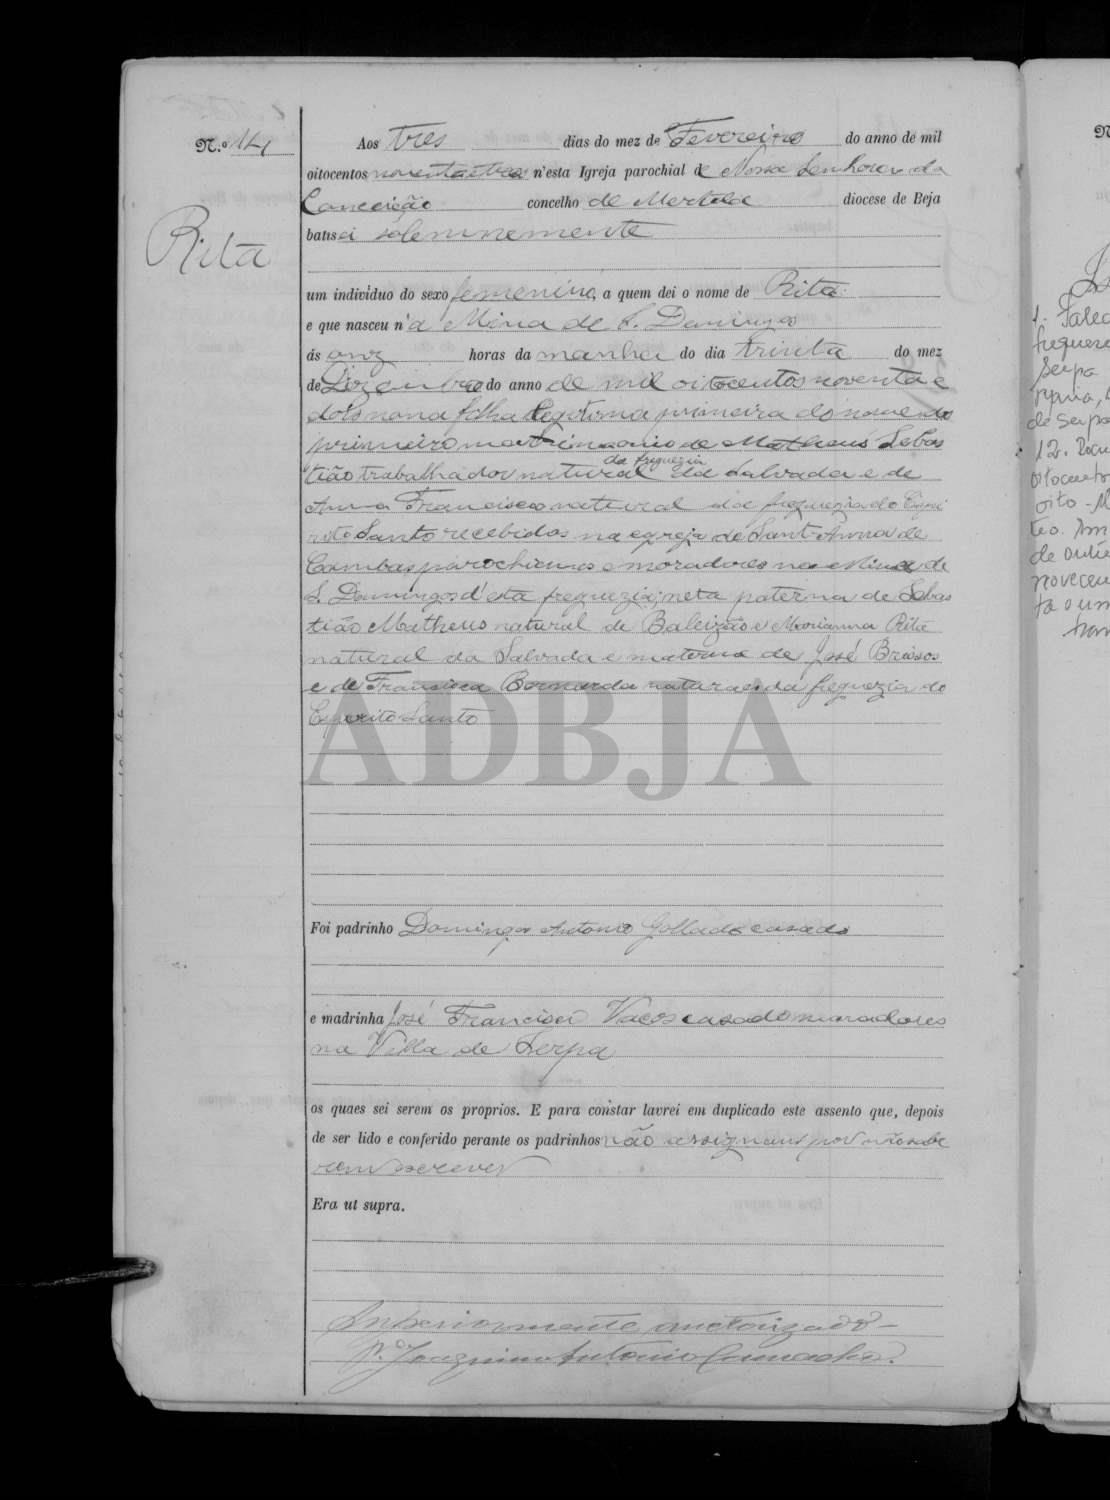 N.º 14
Rita
Aos tres dias do mez de Fevereiro do anno de mil
oitocentos noventa e tres n'esta Igreja parochial de Nossa Senhora da
Conceição concelho de Mertola diocese de Beja
batisei solemnemente
um individuo do sexo femenino, a quem dei o nome de Rita
e que nasceu n'a Mina de S. Domingos
ás onz horas da manha do dia trinta do mez
de Dezembro do anno de mil oitocentos noventa e
dois filha legitima primeira do nome do
primeiro matrimonio de Matheus Sebas
tião trabalhador natural da freguezia da Salvada e de
Anna Francisca natural da freguezia do Espi
rito Santo recebidos na egreja de Sant Anna de
Cambas parochianos e moradores na Mina de
S. Domingos d'esta freguezia; neta paterna de Sebas
tião Matheus natural de Baleizão e Marianna Rita
natural da Salvada e materna de José Brissos
e de Francisca Bernarda naturaes da freguezia do
Espirito Santo
ADBJA
Foi padrinho Domingos Antonio casado
e madrinha José Francisco casado moradores
na Villa de Serpa
os quaes sei serem os proprios. E para constar lavrei em duplicado este assento que, depois
de ser lido e conferido perante os padrinhos não assignam por não sabe
rem escrever
Era ut supra.
Interiormente auctorizado
P.e Joaquim Antonio Camacho.
N
1. Falec
freguesi
Serpa
de Serpa
12.
oitocentos
oito
de
novecen